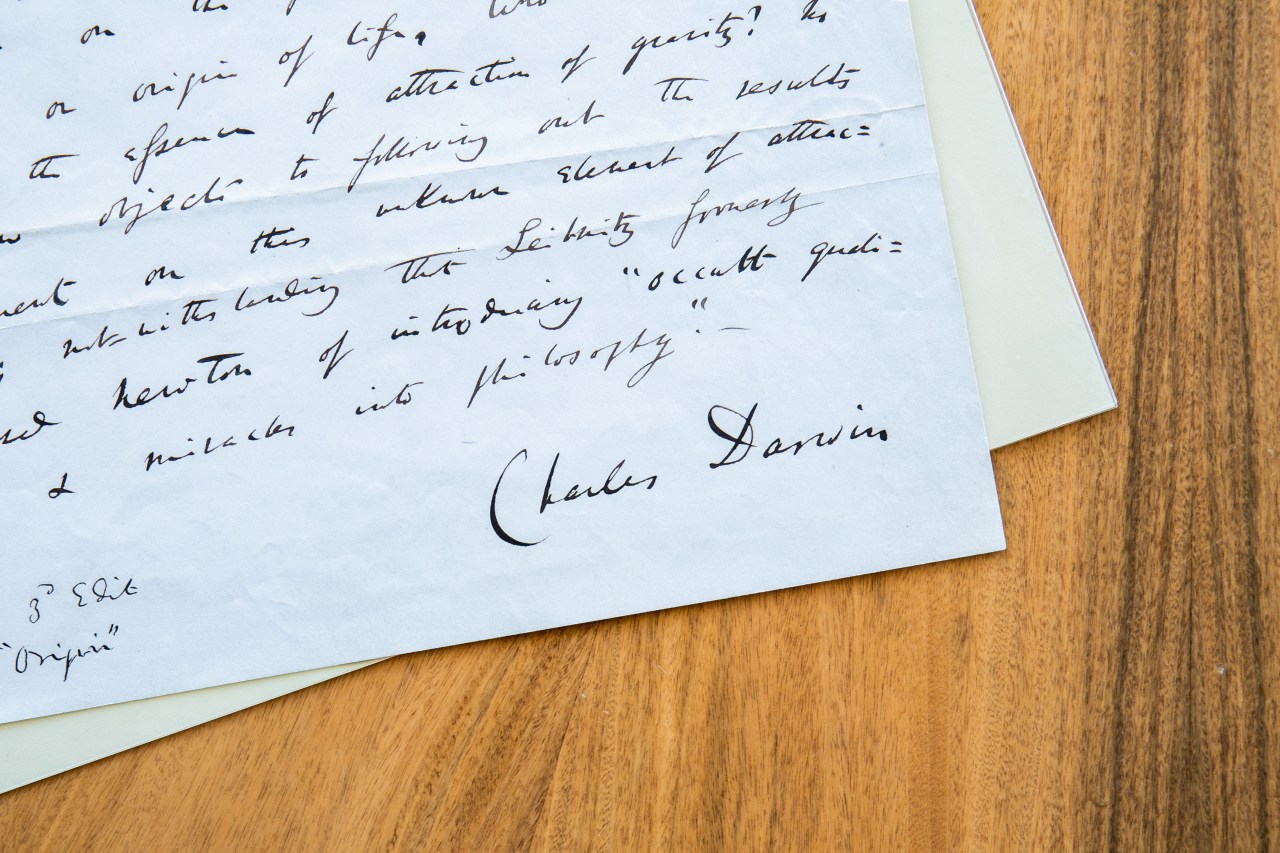 on the
or origin of life. Who
the essence of attraction of gravity? No
objects to following out the results
on this unknown element of attrac=
not-withstanding that Leibnitz formerly
Newton of introducing "occult quali=
& miracles into philosophy."—
Charles Darwin
3d Edit
"Origin"